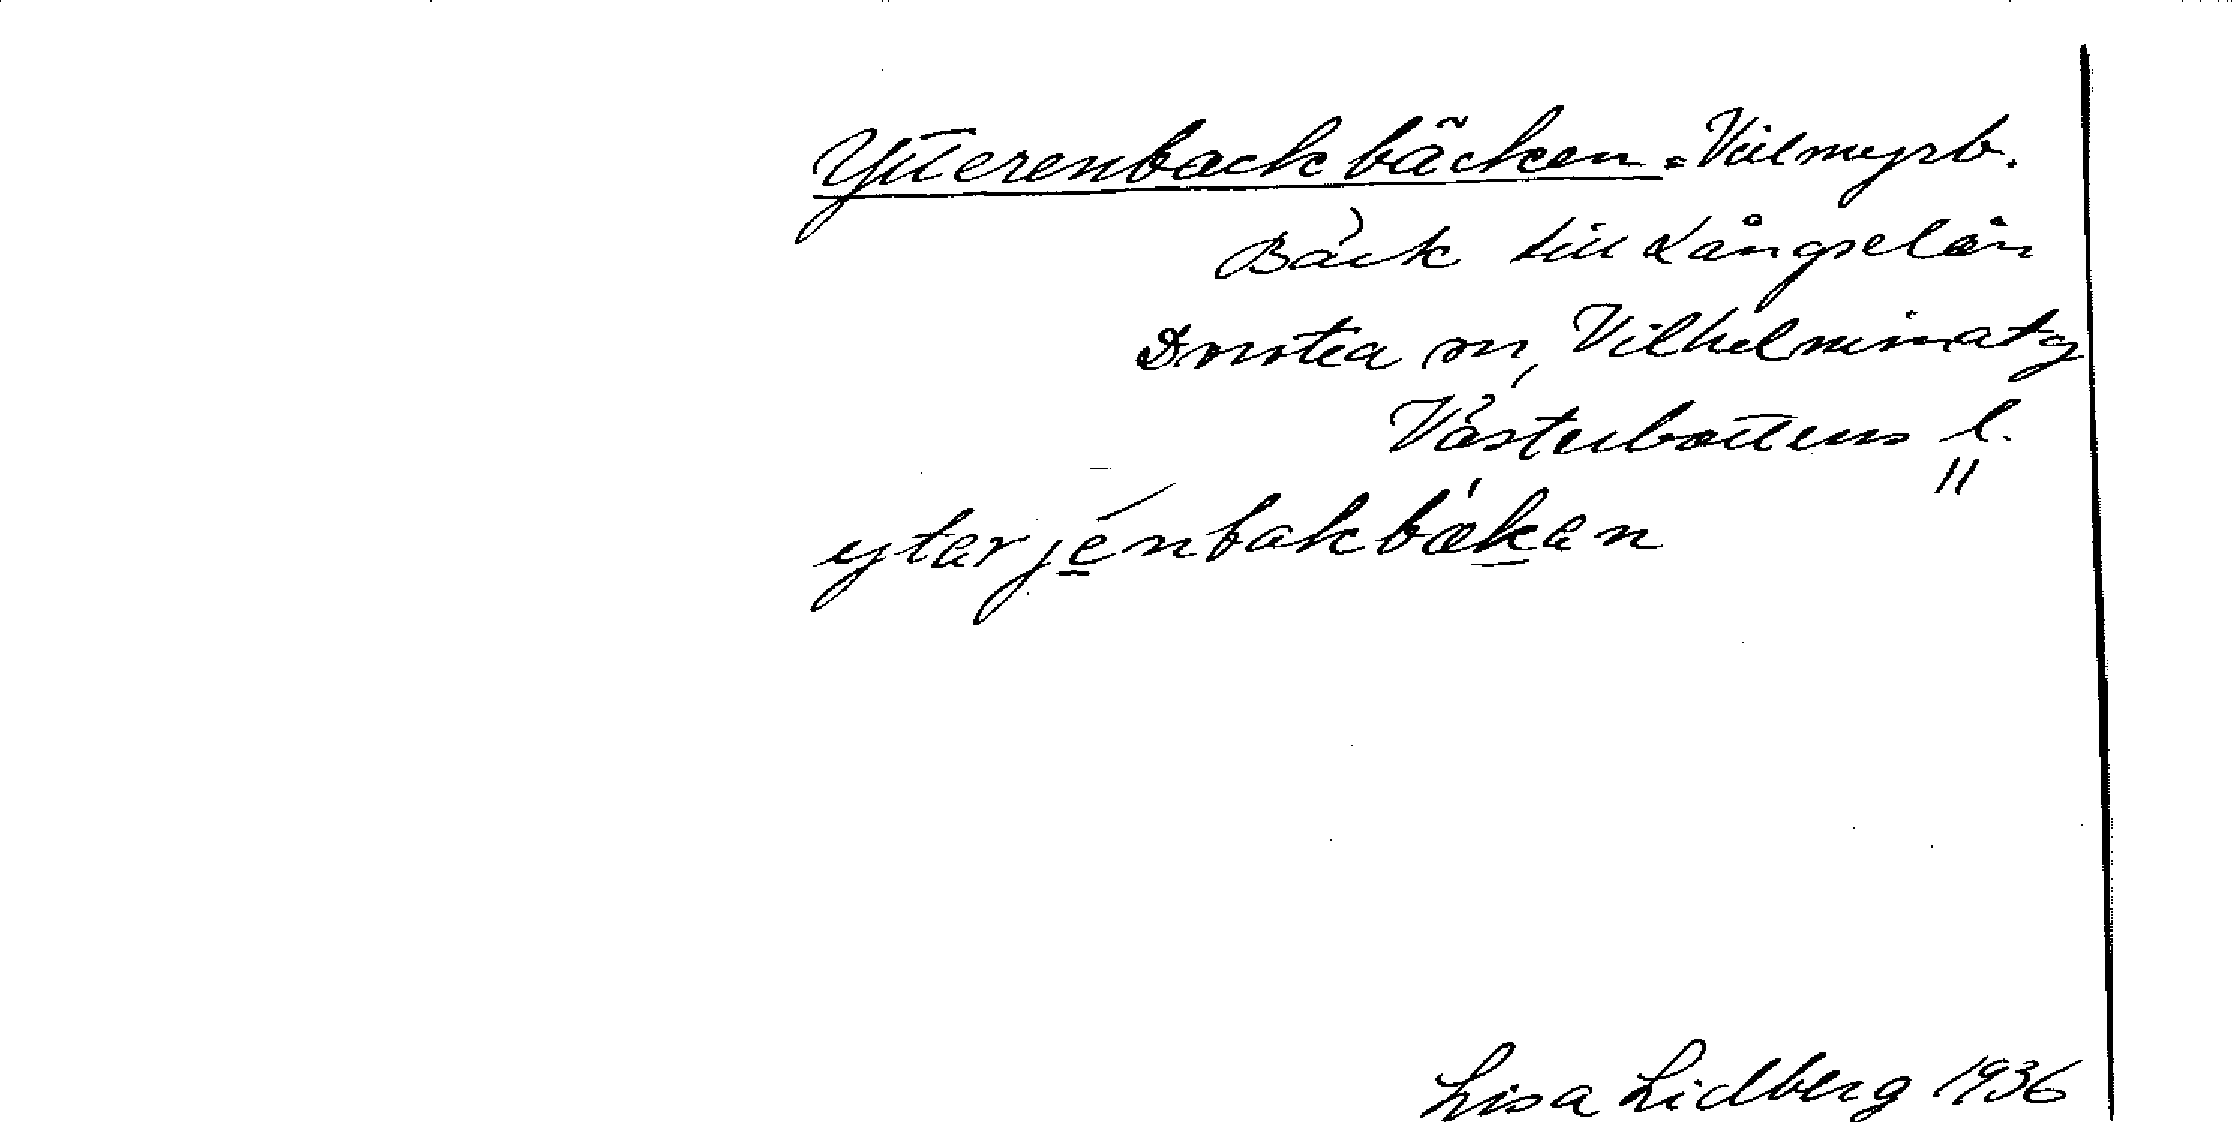 Ytterenbackbäcken = Vitmyrb.
Bäck till Långselån
Dorotea sn, Vilhelmina tg
Västerbottens l.
yterjénbakbækan
Lisa Lidberg 1936